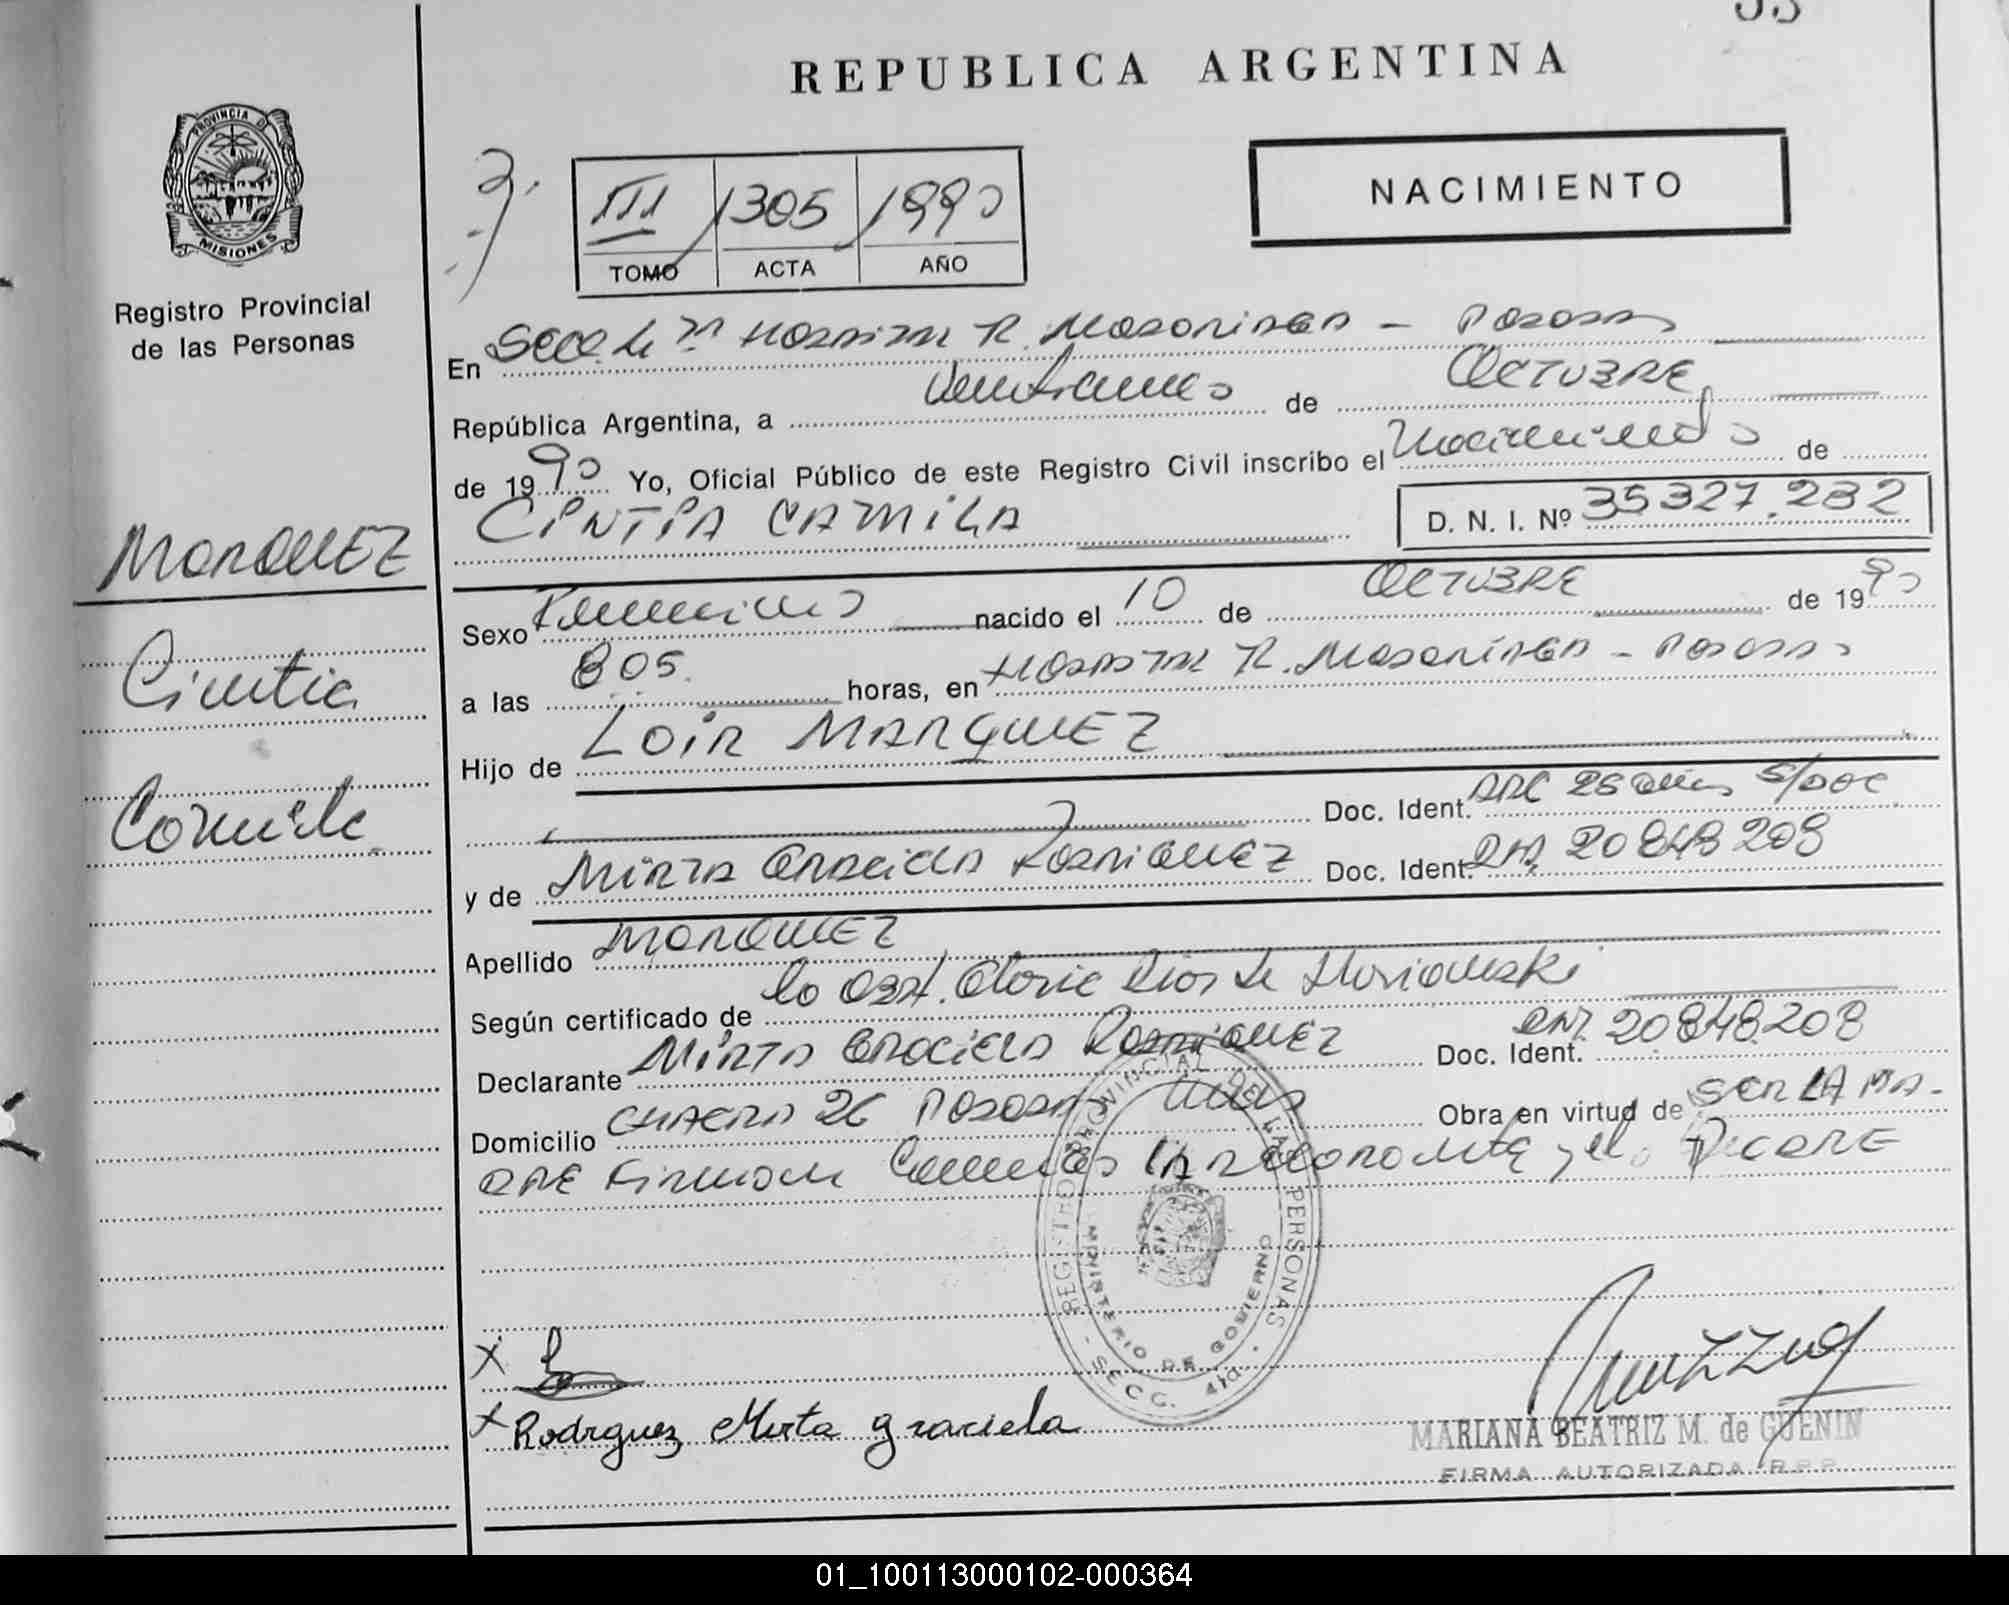 REPUBLICA ARGENTINA
PROVINCIA DE MISIONES
Registro Provincial
de las Personas
NACIMIENTO
III 1305 1990
TOMO ACTA AÑO
En Secc. 4ta Hospital R. Madariaga - Posadas
República Argentina, a Veintinueve de OCTUBRE
de 1990 Yo, Oficial Público de este Registro Civil inscribo el Nacimiento de
CINTIA CAMILA D. N. I. Nº 35327.232
MARQUEZ
Cintia
Camila
Sexo Femenino nacido el 10 de OCTUBRE de 1990
a las 805 horas, en Hospital R. Madariaga - Posadas
Hijo de LOIR MARQUEZ
Doc. Ident. ARG 26 años S/DOC
y de Mirta Graciela Rodriguez Doc. Ident. DNI 20848208
Apellido MARQUEZ
Según certificado de la Obst. Gloria Rios de
Declarante Mirta Graciela Rodriguez Doc. Ident. DNI. 20848.208
Domicilio CHACRA 26 Posadas Obra en virtud de SER LA MA-
DRE Firmando Con la declarante y el PADRE
REGISTRO PROVINCIAL DE LAS PERSONAS - SECC. 4ta. -
MINISTERIO DE GOBIERNO
X
X Rodrguez Mirta graciela
MARIANA BEATRIZ M. de GUENIN
FIRMA AUTORIZADA R.P.P.
01_100113000102-000364